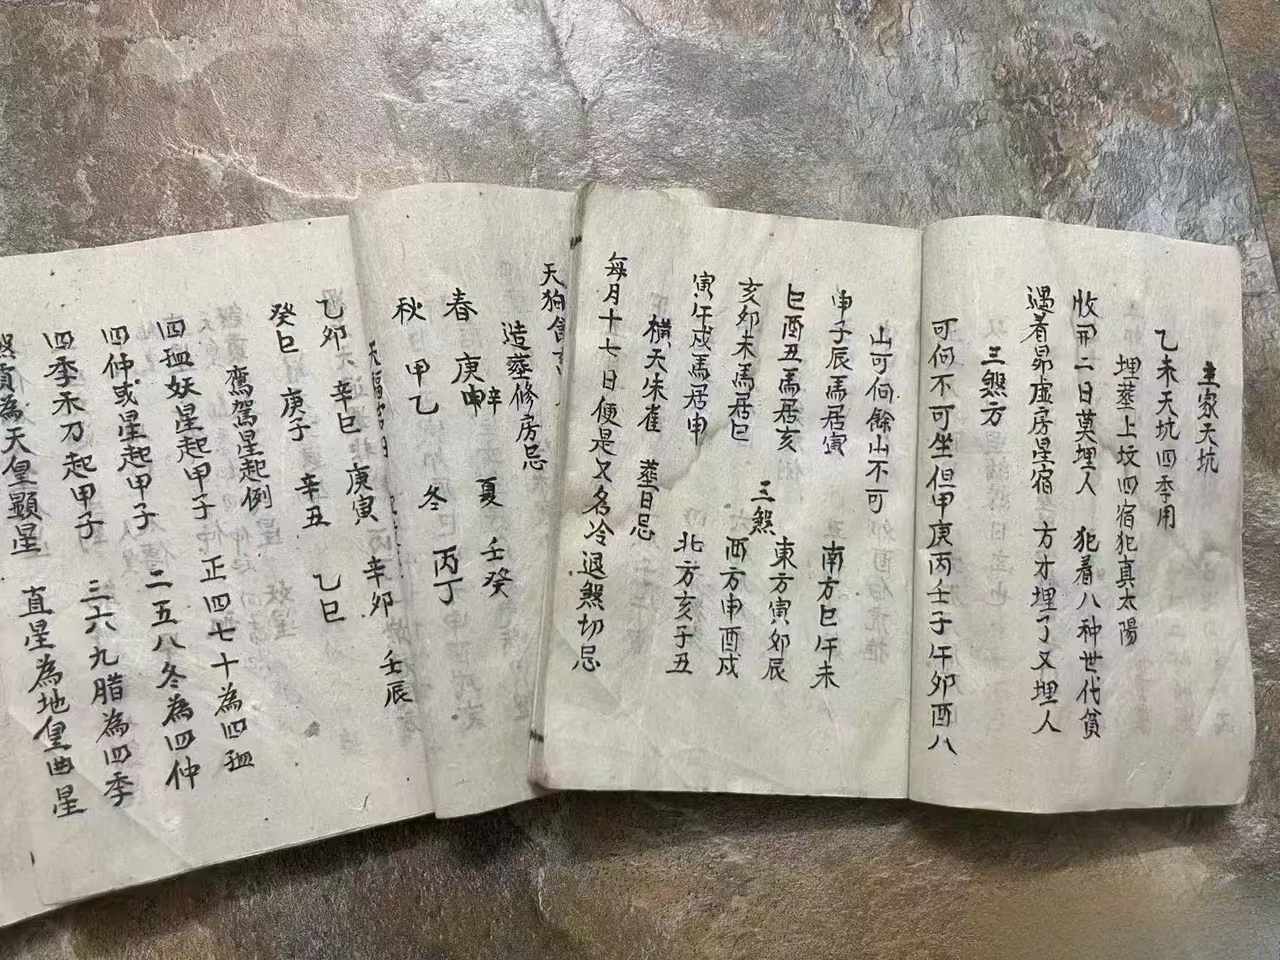 主家天坑
乙未天坑四季用
埋葬上坟四宿犯真太陽
收開二日莫埋人 犯着八种世代貧
遇着昴虚房星宿 方才埋了又埋人
三煞方
可向不可坐但甲庚丙壬子午卯酉八
山可向餘山不可
申子辰馬居寅 南方巳午未
巳酉丑馬居亥 東方寅卯辰
三煞
亥卯未馬居巳 西方申酉戌
寅午戌馬居申 北方亥子丑
橫天朱雀 葬日忌
每月十七日便是又名冷退煞切忌
天狗
造葬修房忌
春 庚申辛 夏 壬癸
秋 甲乙 冬 丙丁
乙卯 辛巳 庚寅 辛卯 壬辰
癸巳 庚子 辛丑 乙巳
鸞駕星起例
四孟妖星起甲子 正四七十為四孟
四仲或星起甲子 二五八冬為四仲
四季禾刀起甲子 三六九腊為四季
煞貢為天皇顯星 直星為地皇曲星